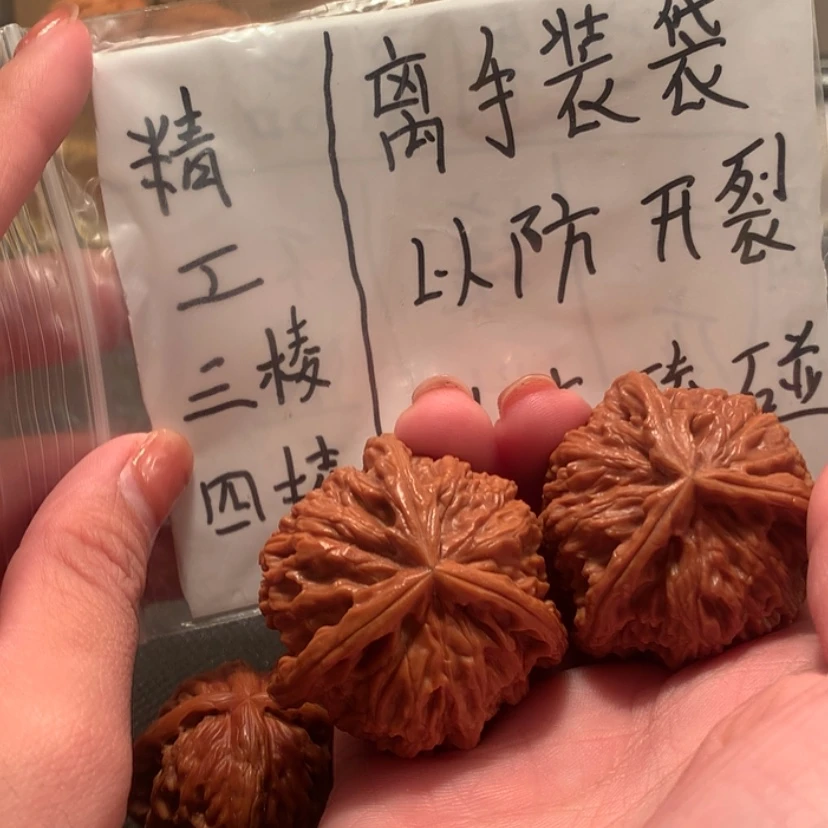 精
工
三棱
四棱
离手装袋
以防开裂
碰